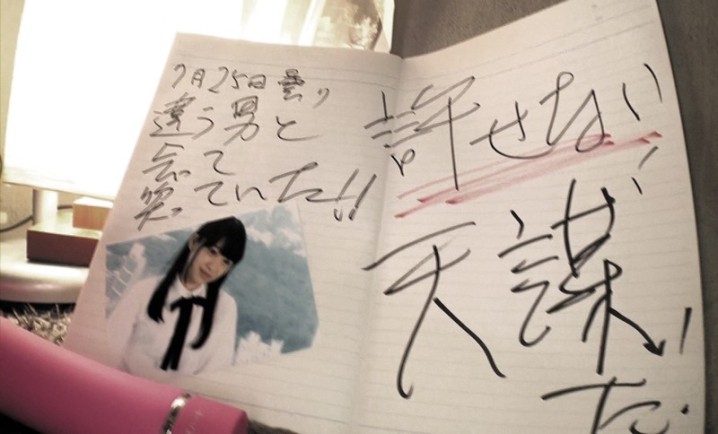 7月25日 曇り
違う男と
会って
笑っていた!!
許せない!
天誅だ!!